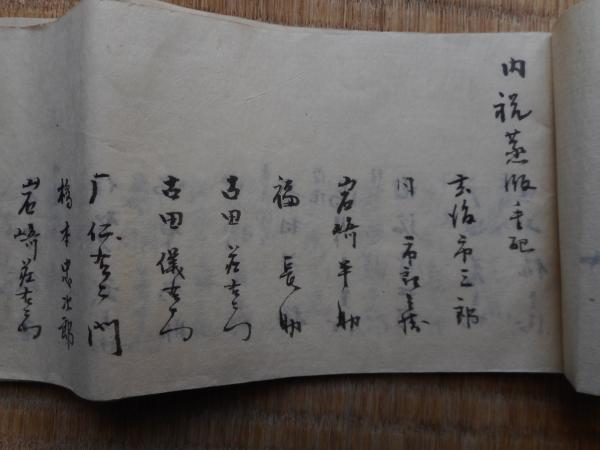 内祝蒸飯手配
市三郎
同 市郎兵衛
岩崎半助
福 長助
吉田 荘右衛門
古田儀右衛門
广 仁右衛門
橋本忠次郎
岩崎荘右衛門